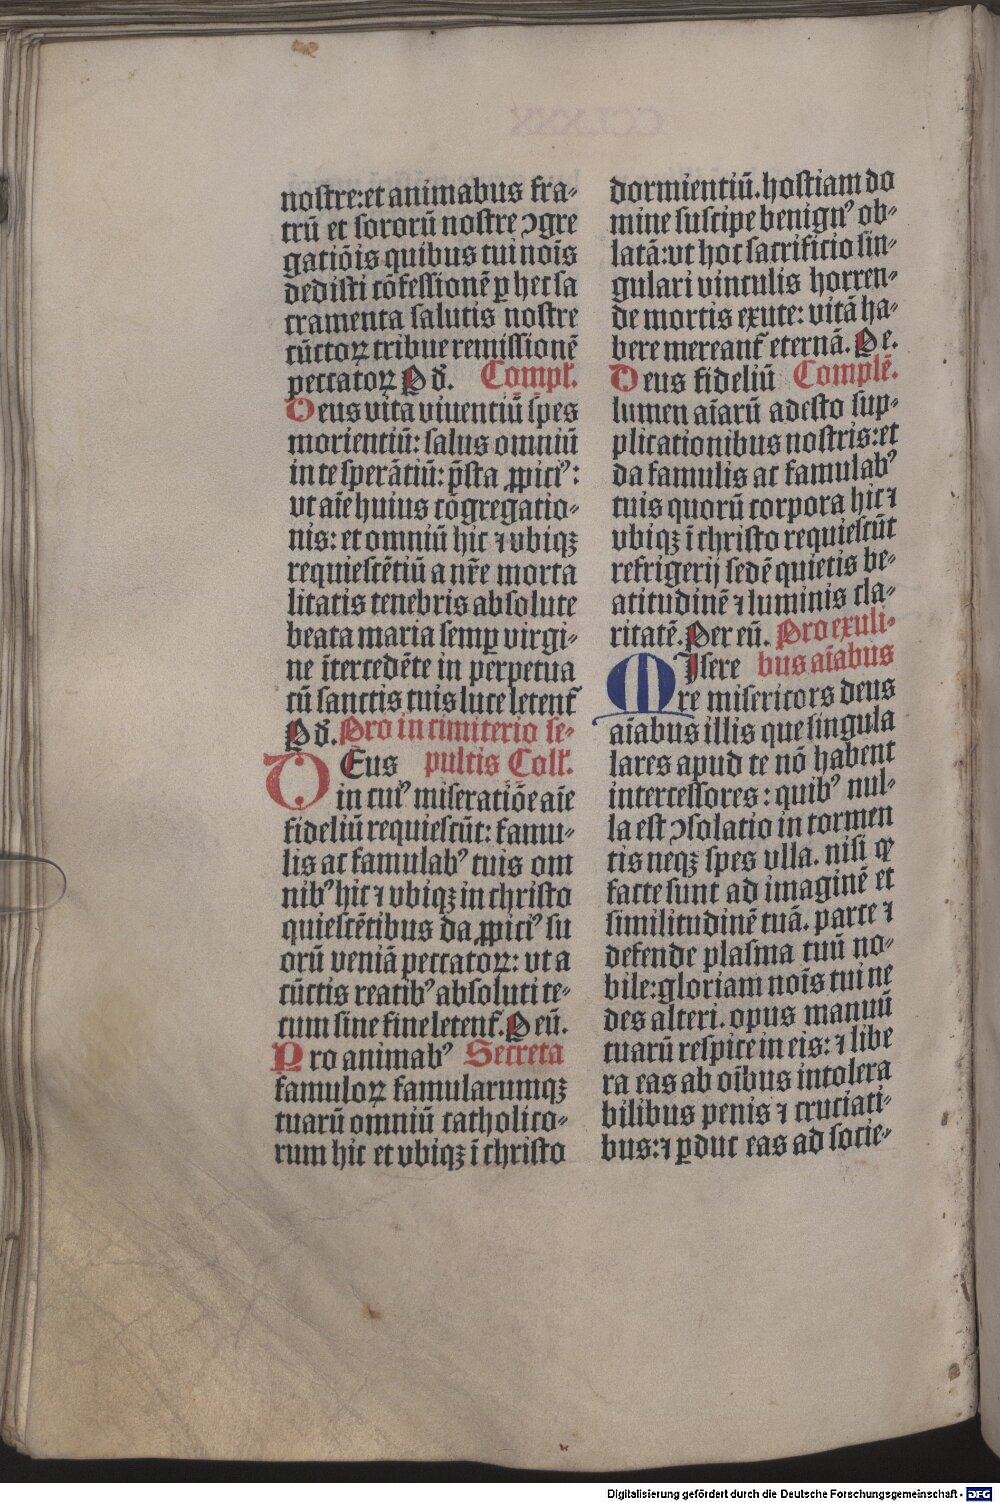 nostre:et animabus fra-
trū et sororū nostre ꝯgre
gatiōis quibus tui nois̄
dedisti cōfessionē ꝑ hec sa
cramenta salutis nostre
cūctoꝝ tribue remissionē
peccatoꝝ P d̄. Compl̄.
Deus vita viuentiū spes
morientiū: salus omniū
in te sperātiū: p̄sta ꝓpiciꝰ:
vt aīe huius cōgregatio-
nis: et omniū hic ⁊ vbiqꝫ
requiescētiū a nr̄e morta
litatis tenebris absolute
beata maria semꝑ virgi-
ne ītercedēte in perpetua
cū sanctis tuis luce letent̄
P d̄. Pro in cimiterio se-
DEus pultis Coll̄.
in cuiꝰ miseratiōe aīe
fideliū requiescūt: famu-
lis ac famulabꝰ tuis om
nibꝰ hic ⁊ vbiqꝫ in christo
quiescētibus da ꝓpiciꝰ su
orū veniā peccatoꝝ: vt a
cūctis reatibꝰ absoluti te-
cum sine fine letent̄. P eū.
Pro animabꝰ Secreta
famuloꝝ famularumqꝫ
tuarū omniū catholico-
rum hic et vbiqꝫ ī christo
dormientiū. hostiam do
mine suscipe benignꝰ ob-
latā:vt hoc sacrificio sin-
gulari vinculis horren-
de mortis exute: vitā ha-
bere mereant̄ eternā. Pe.
Deus fideliū Complē.
lumen aīarū adesto sup-
plicationibus nostris:et
da famulis ac famulabꝰ
tuis quorū corpora hic ⁊
vbiqꝫ ī christo requiescūt
refrigerij sedē quietis be-
atitudinē ⁊ luminis cla-
ritatē. Per eū. Pro exuli-
MIsere bus aīabus
re misericors deus
aīabus illis que singula
lares apud te nō habent
intercessores: quibꝰ nul-
la est ꝯsolatio in tormen
tis neqꝫ spes vlla. nisi ꝙ
facte sunt ad imaginē et
similitudinē tuā. parce ⁊
defende plasma tuū no-
bile:gloriam nois̄ tui ne
des alteri. opus manuū
tuarū respice in eis: ⁊ libe
ra eas ab oībus intolera
bilibus penis ⁊ cruciati-
bus:⁊ ꝑduc eas ad socie-
Digitalisierung gefördert durch die Deutsche Forschungsgemeinschaft - DFG